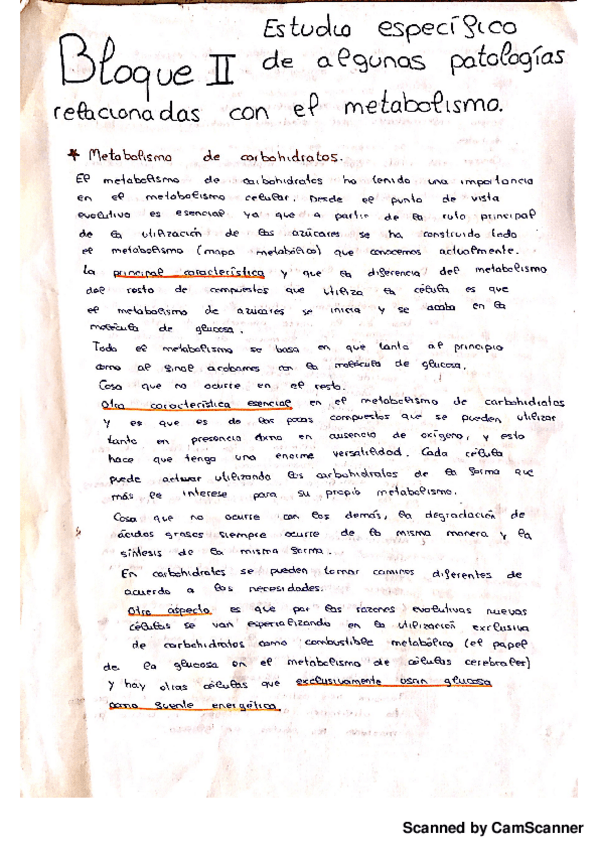 Estudio específico
Bloque II de algunas patologías
relacionadas con el metabolismo.
* Metabolismo de carbohidratos.
El metabolismo de carbohidratos ha tenido una importancia
en el metabolismo celular. Desde el punto de vista
evolutivo es esencial ya que a partir de la ruta principal
de la utilización de los azúcares se ha construido todo
el metabolismo (mapa metabólico) que conocemos actualmente.
La principal característica y que la diferencia del metabolismo
del resto de compuestos que utiliza la célula es que
el metabolismo de azúcares se inicia y se acaba en la
molécula de glucosa.
Todo el metabolismo se basa en que tanto al principio
como al final acabamos con la molécula de glucosa.
Cosa que no ocurre en el resto.
Otra característica esencial en el metabolismo de carbohidratos
y es que es de los pocos compuestos que se pueden utilizar
tanto en presencia como en ausencia de oxígeno, y esto
hace que tenga una enorme versatilidad. Cada célula
puede actuar utilizando los carbohidratos de la forma que
más le interese para su propio metabolismo.
Cosa que no ocurre con los demás, la degradación de
ácidos grasos siempre ocurre de la misma manera y la
síntesis de la misma forma...
En carbohidratos se pueden tomar caminos diferentes de
acuerdo a las necesidades.
Otro aspecto es que por las razones evolutivas nuevas
células se van especializando en la utilización exclusiva
de carbohidratos como combustible metabólico (el papel
de la glucosa en el metabolismo de células cerebrales)
y hay otras células que exclusivamente usan glucosa
como fuente energética.
Scanned by CamScanner